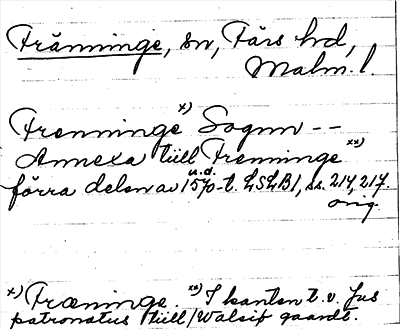 Tränninge, sn, Färs hd,
Malm. l.
Trenninge x) Sognn --
Annexa tüll Treninge xx)
förra delen av 1570-t. u.d. LSLB1, ss. 214, 217.
orig.
x) Træninge. xx) I kanten t. v. Jus
patronatus tüll / Walsiø gaardt.